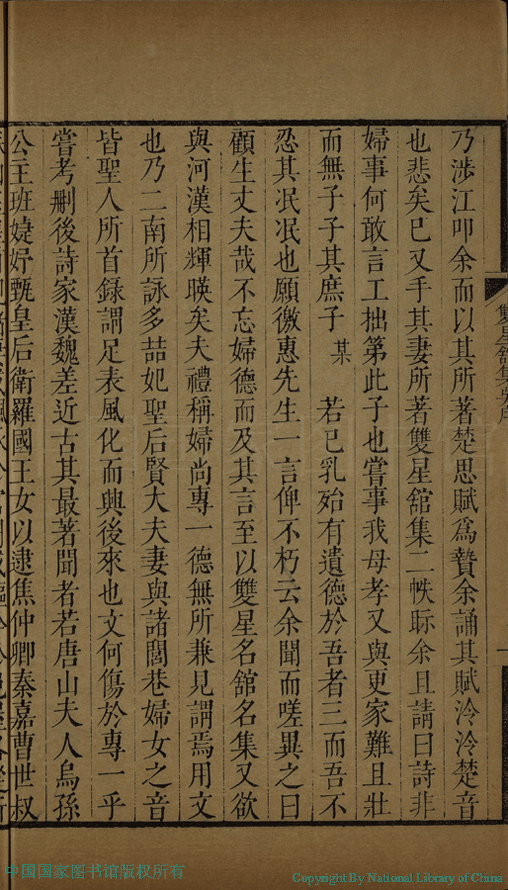 乃渉江叩余而以其所著楚思賦爲贄余誦其賦泠泠楚音
也悲矣已又手其妻所著雙星舘集二帙眎余且請曰詩非
婦事何敢言工拙第此子也嘗事我母孝又與更家難且壯
而無子子其庶子某若已乳殆有遺德於吾者三而吾不
忍其泯泯也願徼惠先生一言俾不朽云余聞而嗟異之曰
顧生丈夫哉不忘婦德而及其言至以雙星名舘名集又欲
與河漢相輝暎矣夫禮稱婦尚專一德無所兼見謂焉用文
也乃二南所詠多喆妃聖后賢大夫妻與諸閭巷婦女之音
皆聖人所首録謂足表風化而興後來也文何傷於專一乎
嘗考刪後詩家漢魏差近古其最著聞者若唐山夫人烏孫
公主班婕妤甄皇后衛羅國王女以逮焦仲卿秦嘉曹世叔
雙星舘集
序
一
中国国家图书馆版权所有
Copyright By National Library of China